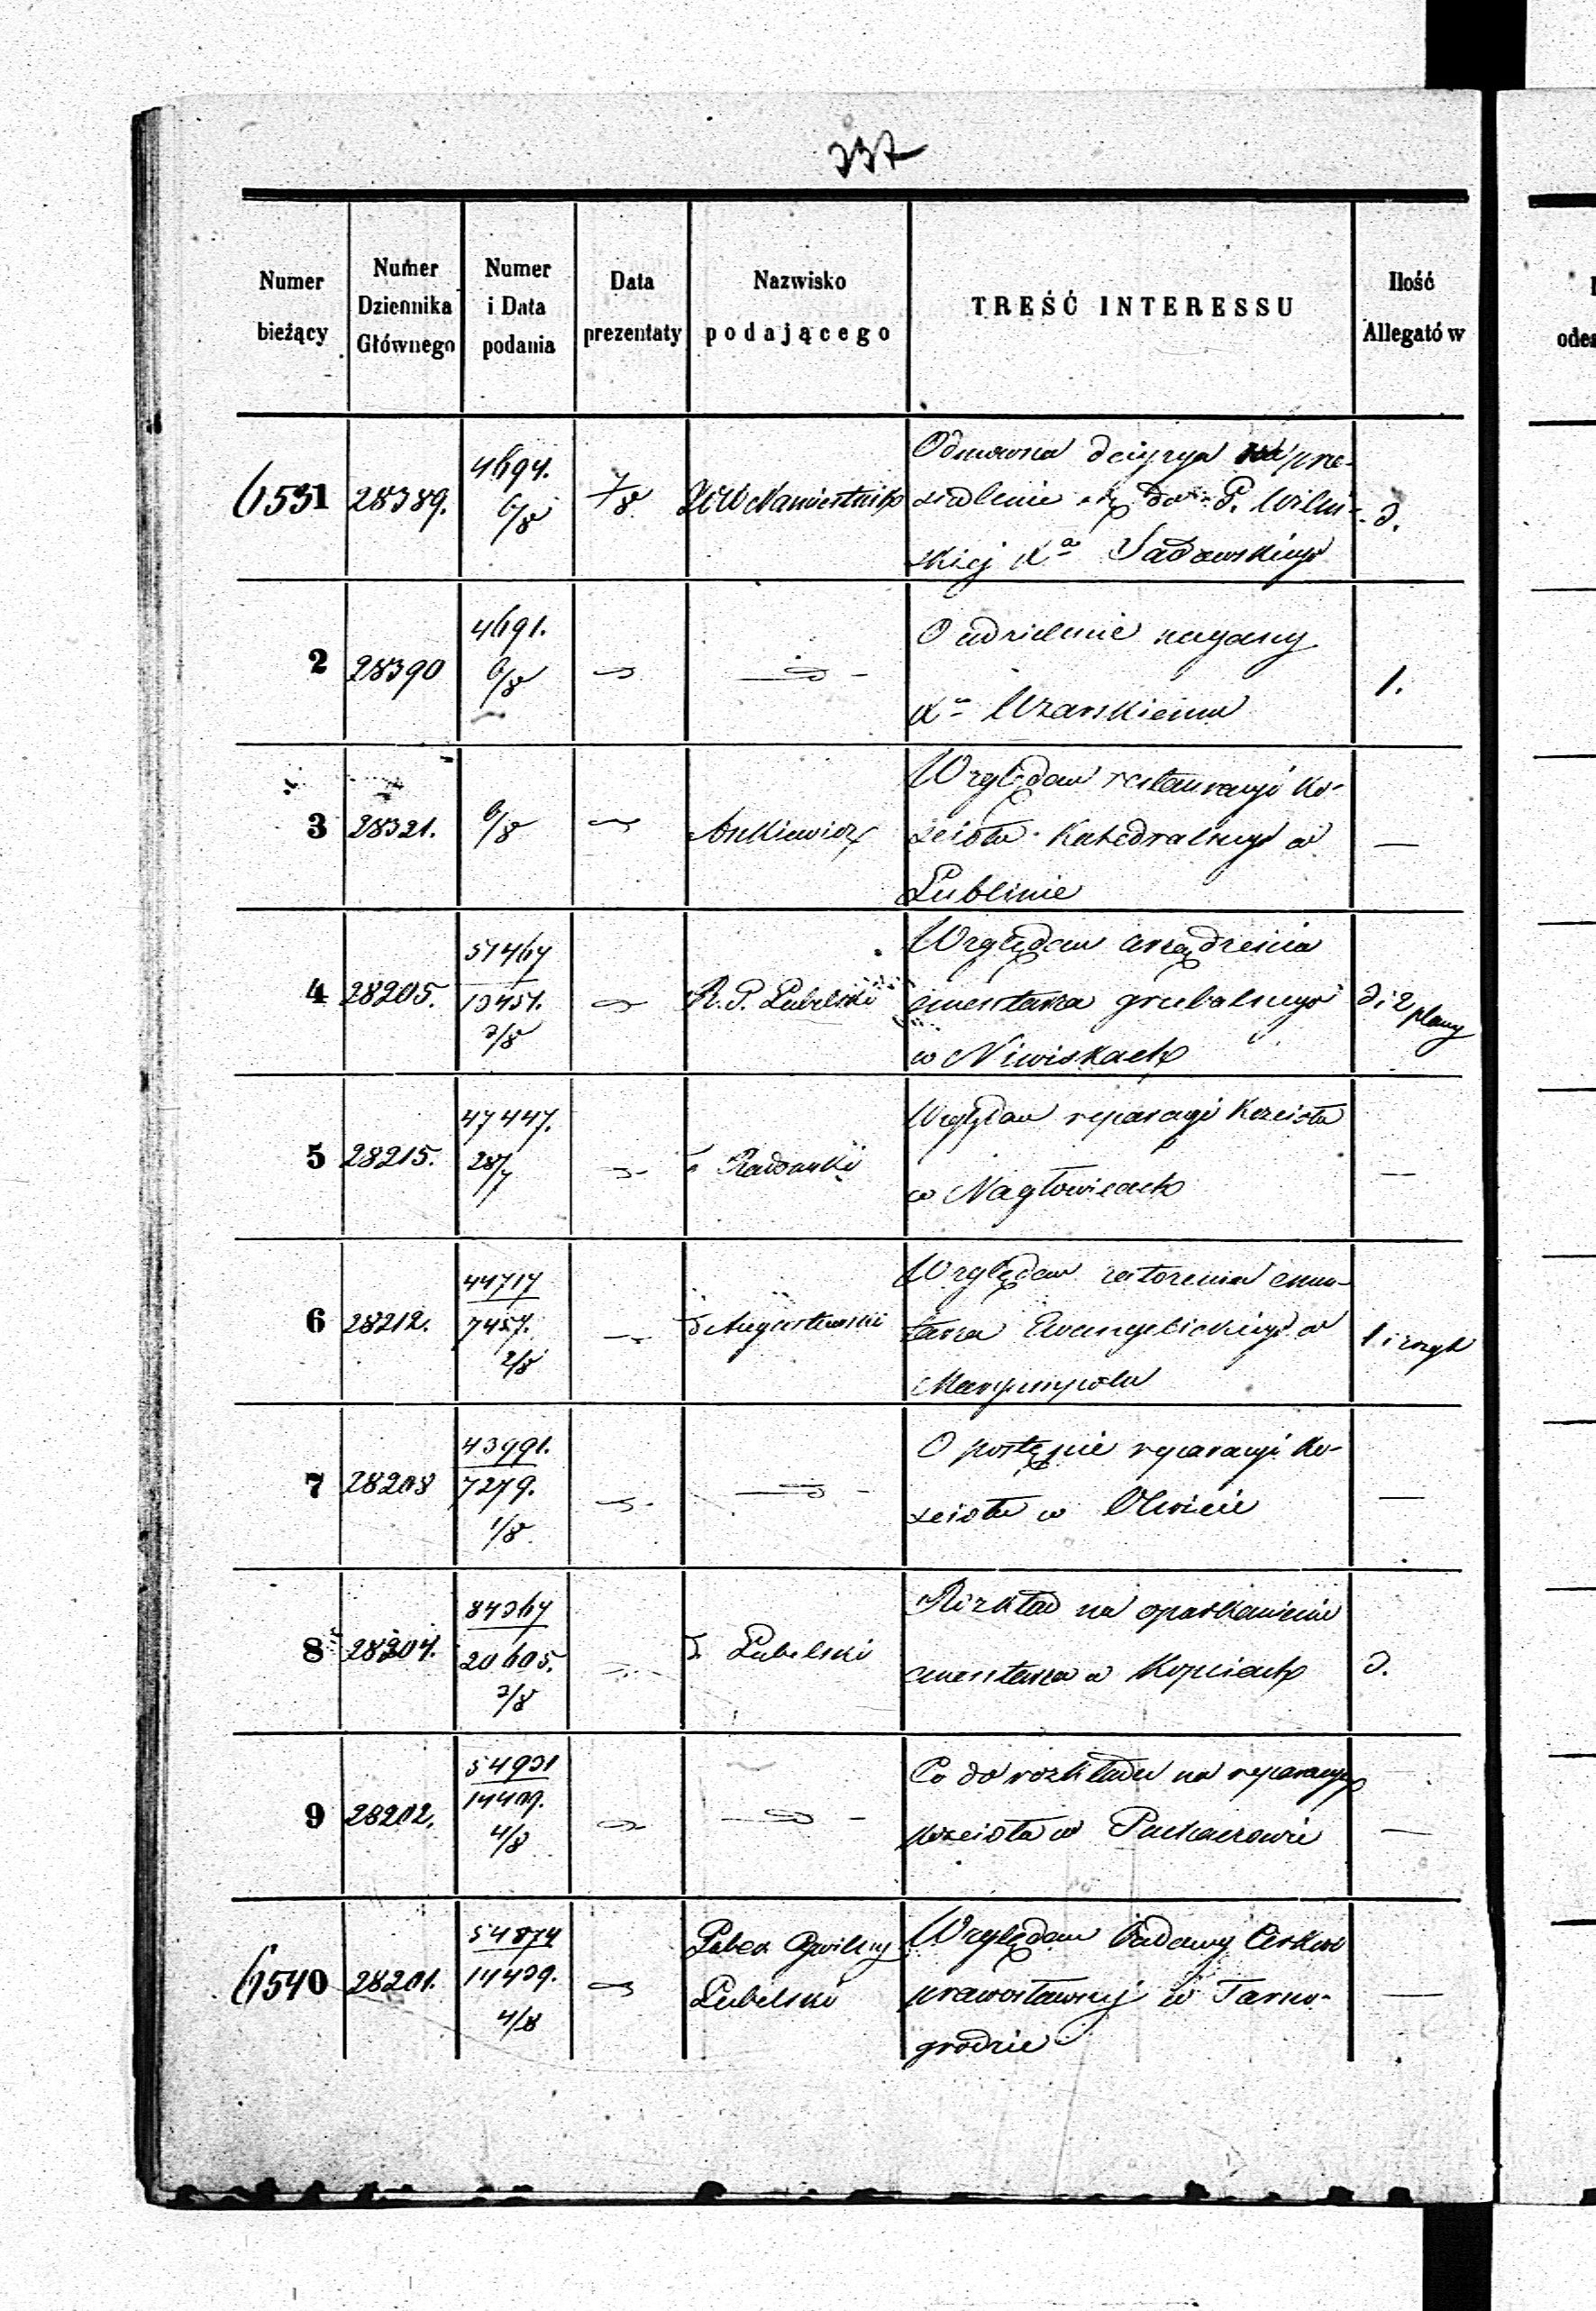 337
Numer bieżący | Numer Dziennika Głównego | Numer i Data podania | Data prezentaty | Nazwisko podającego | TREŚĆ INTERESSU | Ilość Allegatów
6531 | 28389. | 4694. 6/8 | 7/8 | JW Namiestnik | Odmowna decyzya na prze-
siedlenie się do P. Wileń-
skiej Xa Sadowskiego | 3.
2 | 28390 | 4691. 6/8 | O udzielenie nagany
Xu Uzarskiemu | 1.
3 | 28321. | 6/8 | Ankiewicz | Względem restauracyi Ko-
ścioła Katedralnego w
Lublinie | —
4 | 28205. | 51467 / 13457. 3/8 | R. G. Lubelski | Względem urządzenia
cmentarza grzebalnego
w Niwiskach | 3 i 2 plany
5 | 28215. | 47447. 28/7 | " Radomski | Względem reparacyi Kościoła
w Nagłowicach | —
6 | 28212. | 44717 / 7457. 2/8 | Augustowski | Względem założenia cmen-
tarza Ewangelickiego w
Maryampolu | 1 i
7 | 28208 | 43991. / 7279. 1/8 | O postępie reparacyi Ko-
ścioła w Olwicie | —
8 | 28204. | 84367 / 20605. 3/8 | Lubelski | Rozkład na oparkanienie
cmentarza w Kopciach | 3.
9 | 28202. | 54931 / 14409. 4/8 | Co do rozkładu na reparacyę
kościoła w Puchaczowie | —
6540 | 28201. | 54874 / 14439. 4/8 | Guber Cywilny
Lubelski | Względem budowy Cerkwi
prawosławnej w Tarno-
grodzie | —